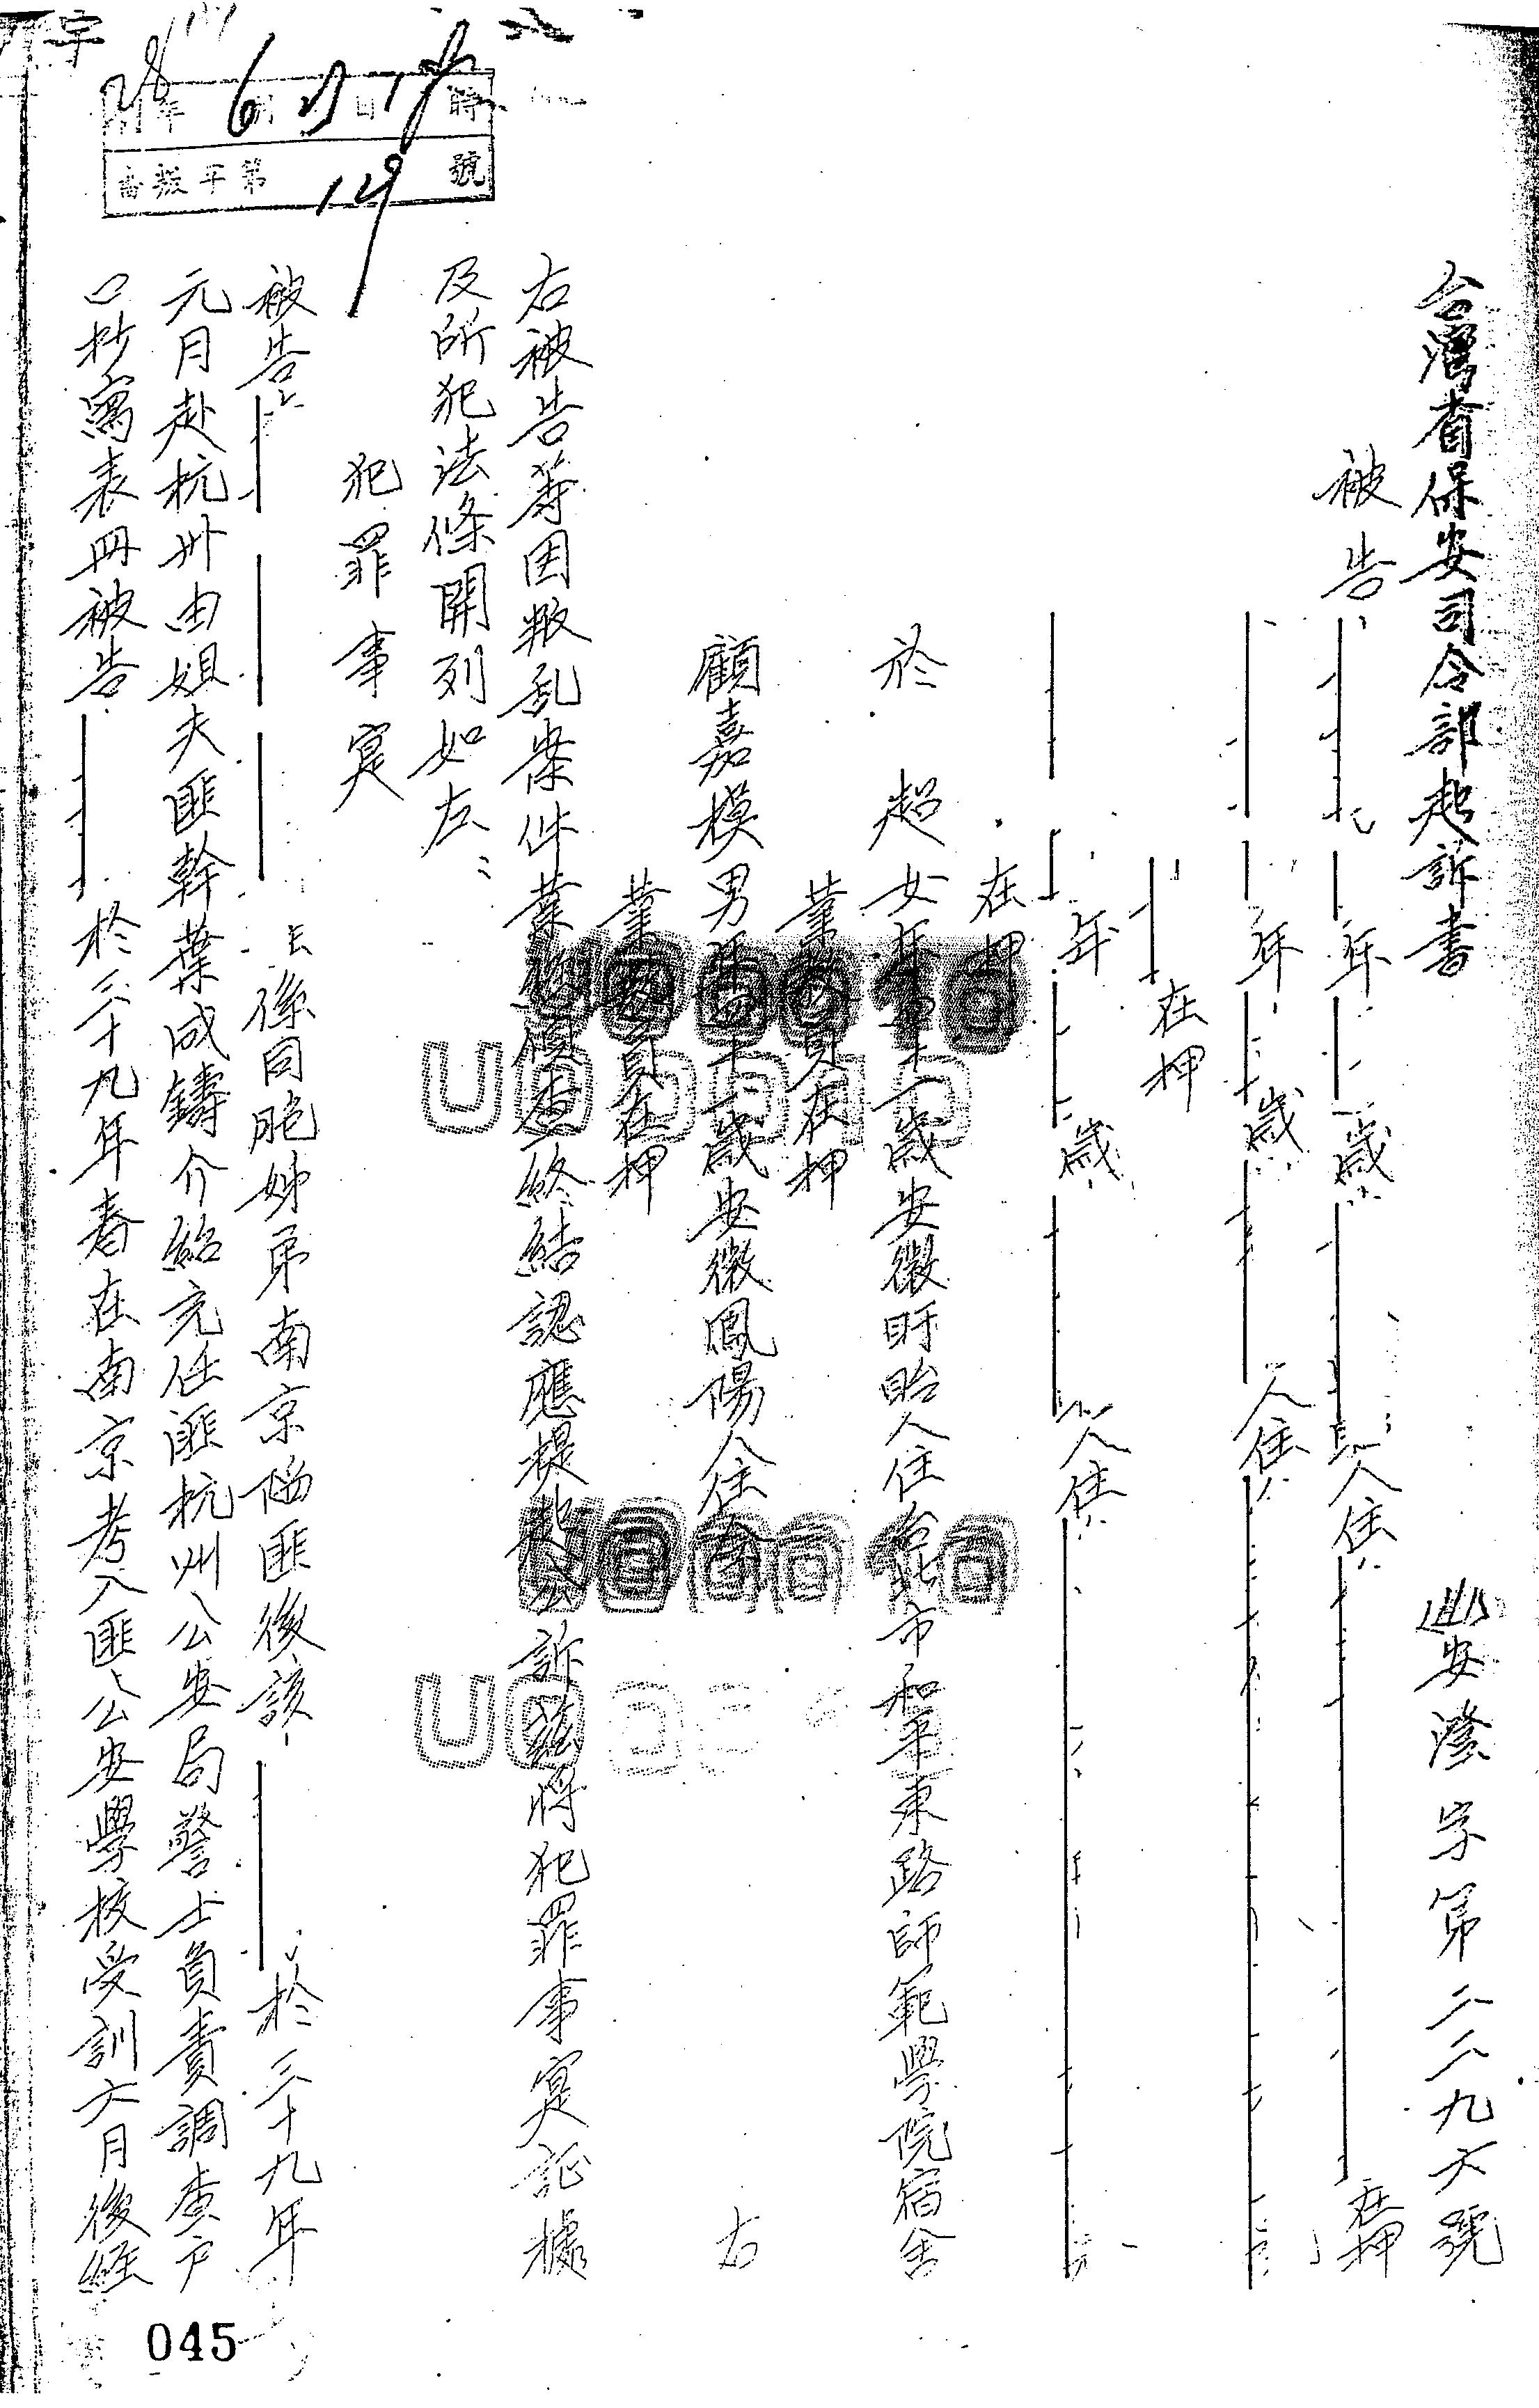 台灣省保安司令部起訴書
安澄字第二二九六號
被告 年 歲 人住 在押
年 歲 人住
在押
年 歲 人住
在押
於超 女年 十一歲安徽盱眙人住台北市和平東路師範學院宿舍
業 員在押
顧嘉模 男年 十一歲安徽鳳陽人住 右
業 員在押
右被告等因叛乱案件業經偵查終結認應提起公訴茲將犯罪事実証據
及所犯法條開列如左：
犯罪事実
被告 係同胞姊弟南京陷匪後該 於三十九年
元月赴杭州由姐夫匪幹葉成鑄介紹充任匪杭州公安局警士負責調查戶
口抄寫表冊被告 於三十九年春在南京考入匪公安學校受訓六月後經
年 6 月 日 時
第 129 號
045